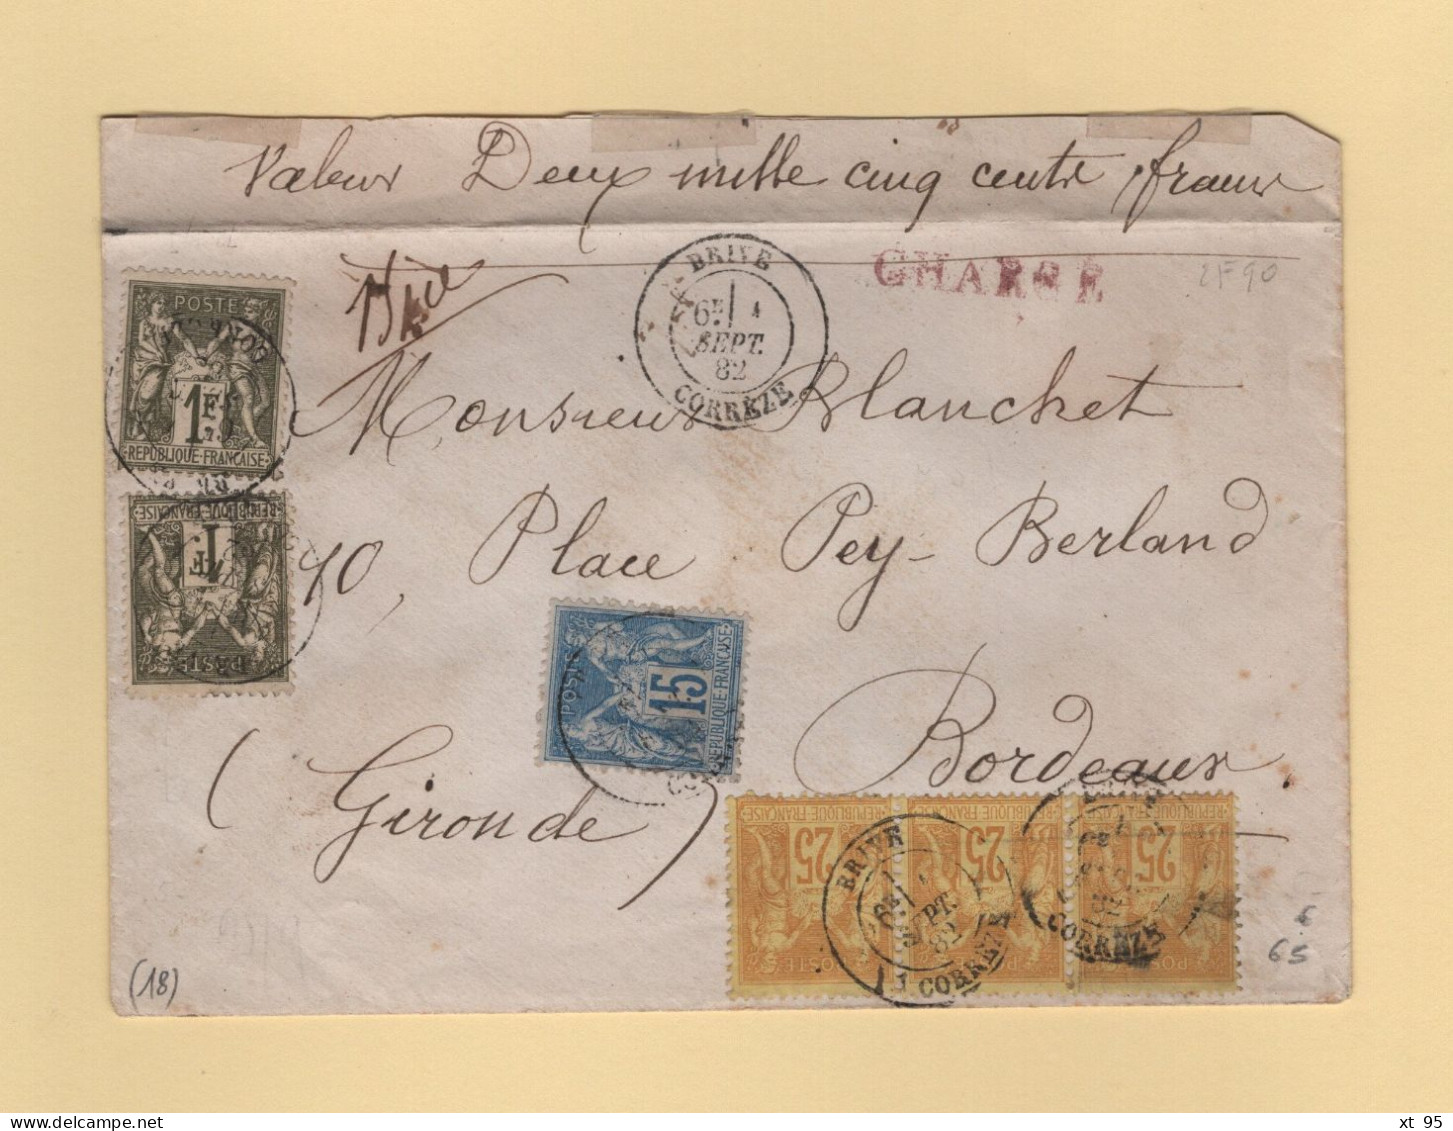 Valeur Deux mille cinq cents francs
BRIVE
6E
SEPT.
82
CORRÈZE
CHARGÉ
2F90
Monsieur Blanchet
POSTE
1F
REPUBLIQUE FRANÇAISE
90, Place Pey-Berland
POSTE
1F
REPUBLIQUE FRANÇAISE
Bordeaux
(Gironde)
POSTE
15
REPUBLIQUE FRANÇAISE
25
REPUBLIQUE FRANÇAISE
POSTE
25
REPUBLIQUE FRANÇAISE
POSTE
25
REPUBLIQUE FRANÇAISE
POSTE
BRIVE
6E
SEPT.
82
CORRÈZE
CORRÈZE
6
65
(18)
xt 95